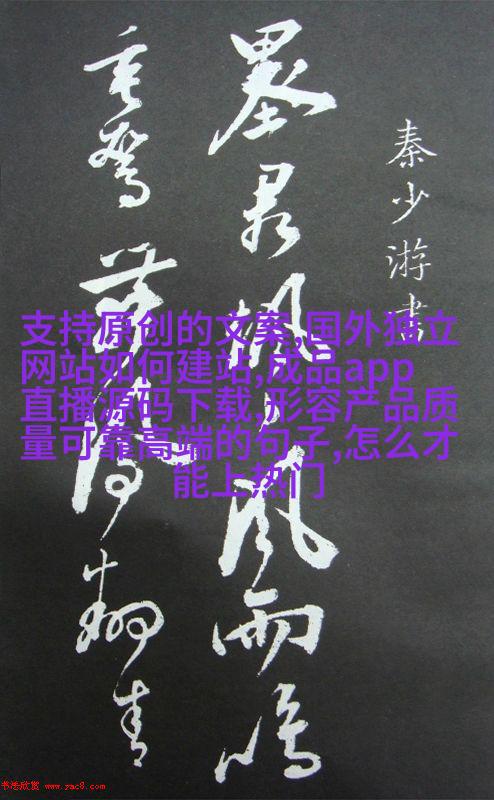 秦少游書
墨君
風雨鳴
支持原创的文案,国外独立
网站如何建站,成品app
直播源码下载,形容产品质
量可靠高端的句子,怎么才
能上热门
书法欣赏 www.yac8.com